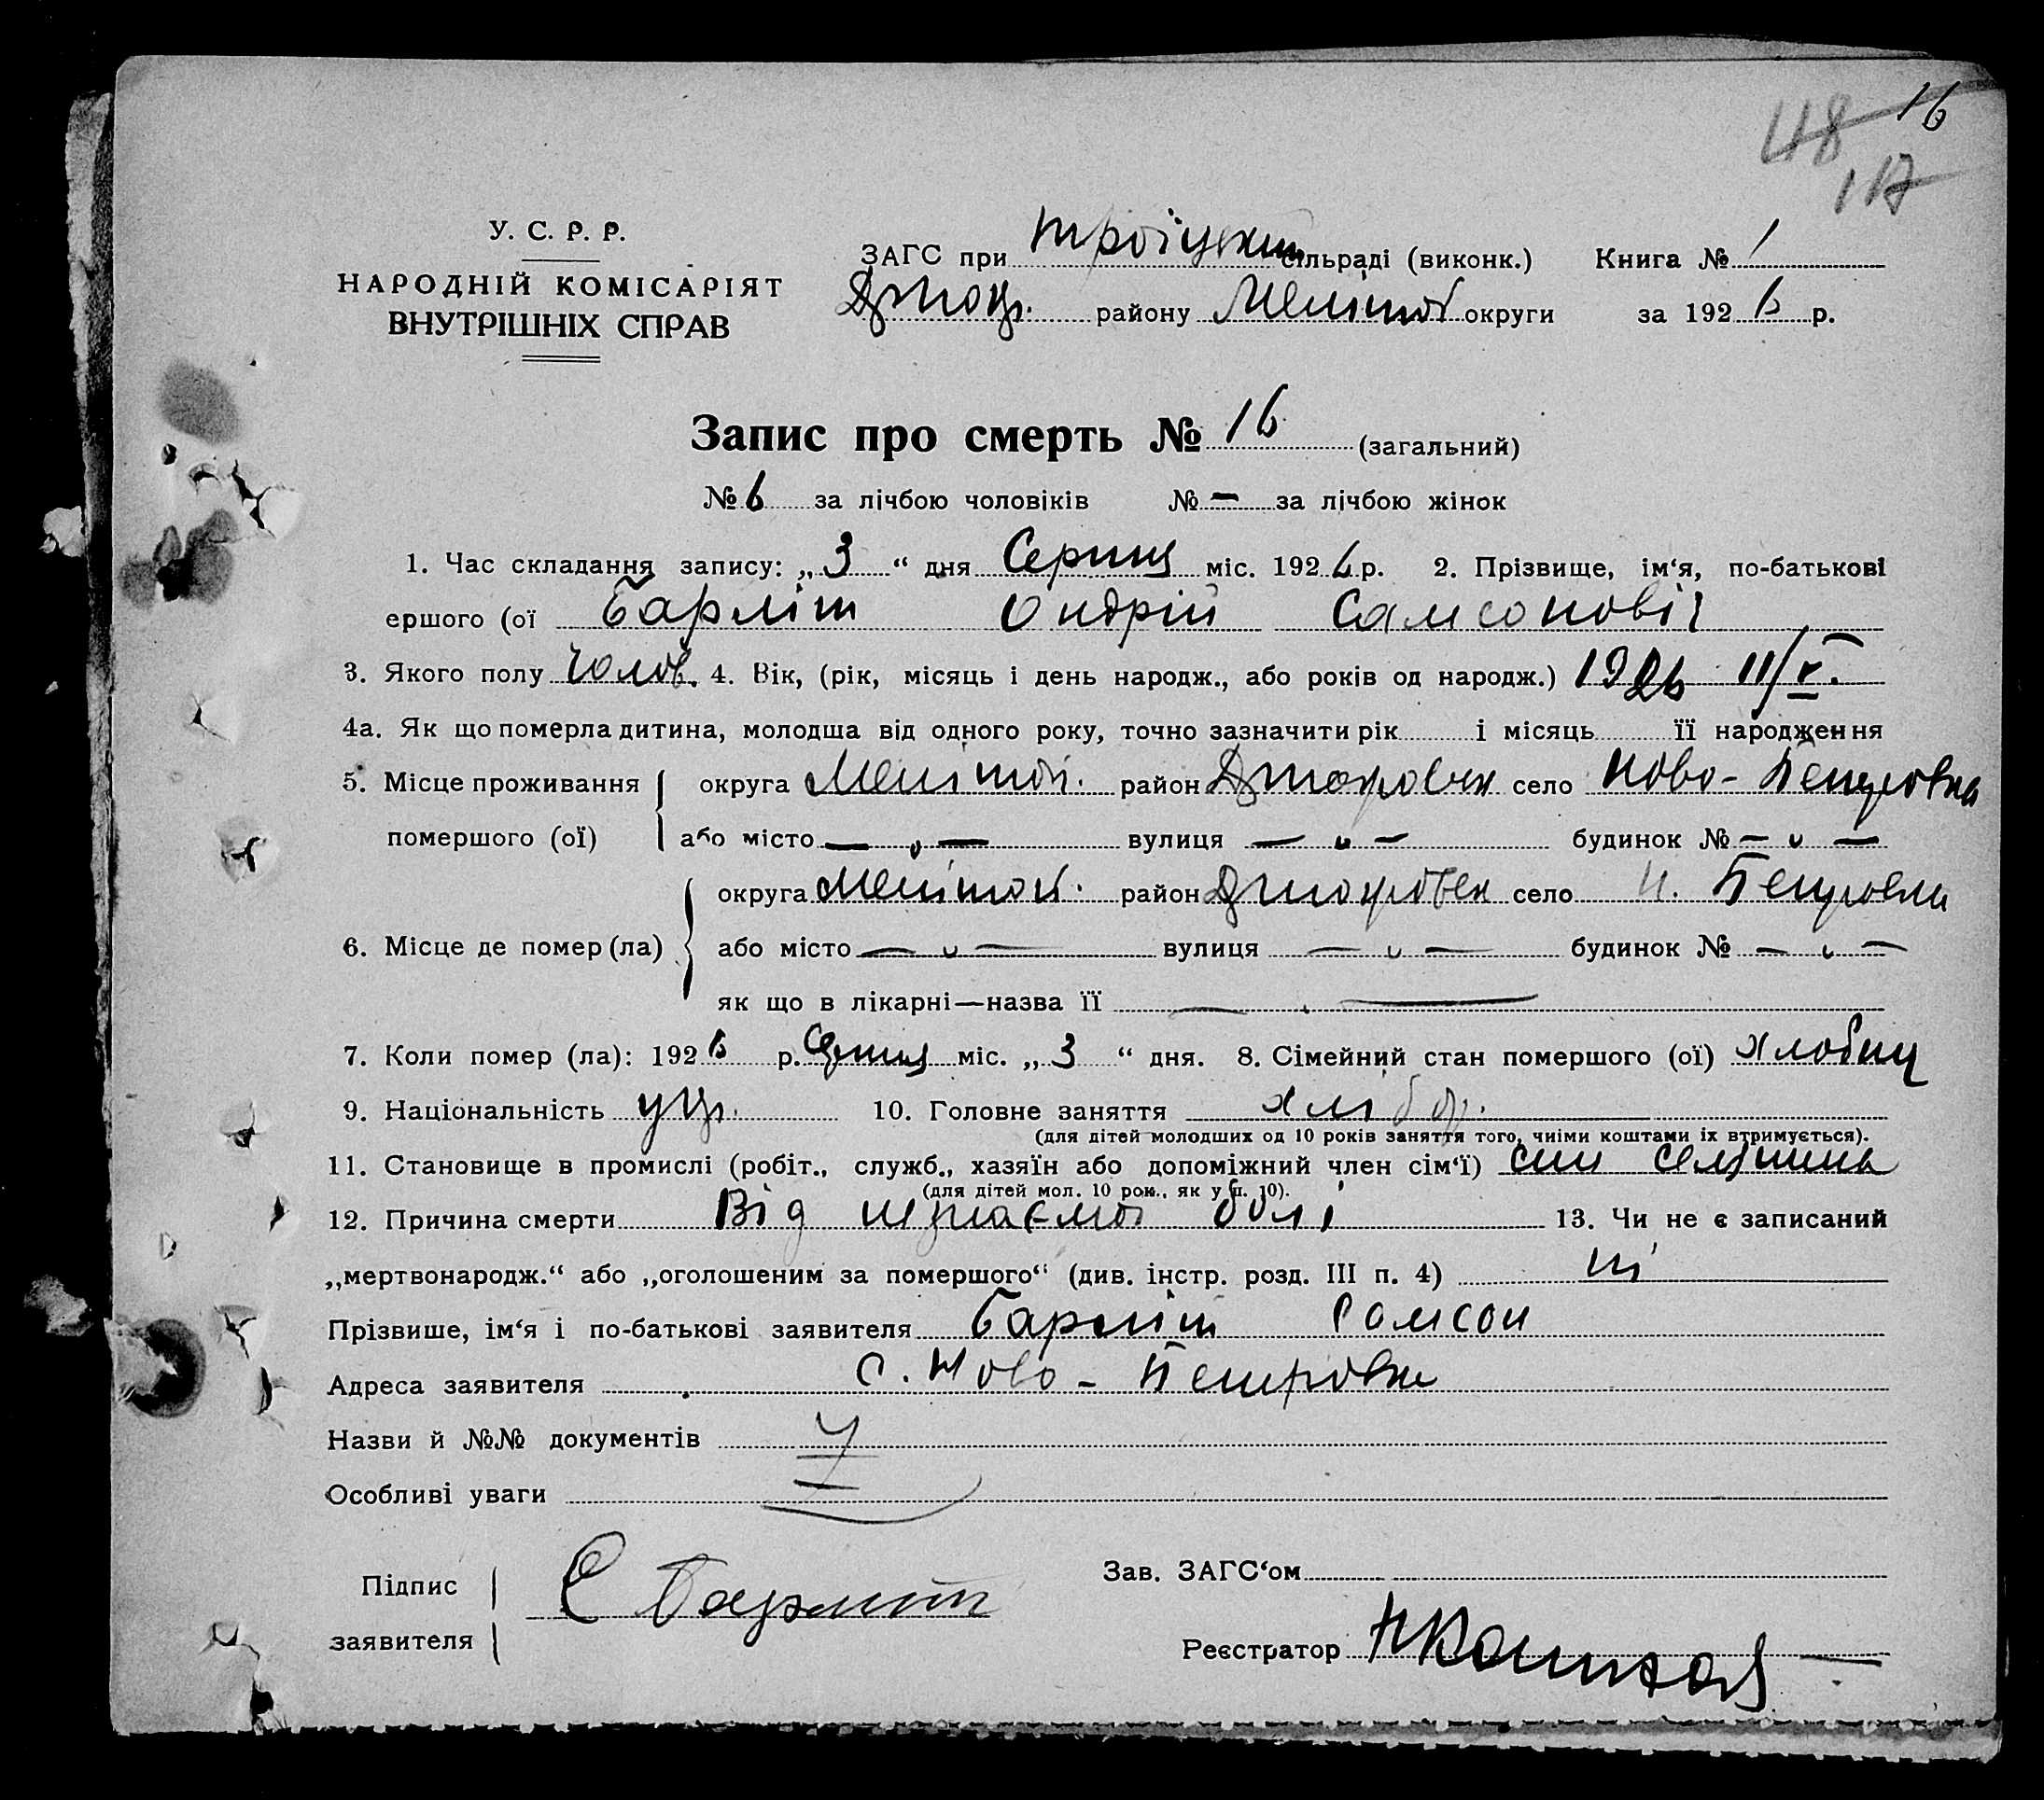 16
48
17
У. С. Р. Р.
НАРОДНІЙ КОМІСАРІЯТ
ВНУТРІШНІХ СПРАВ
ЗАГС при Троїцькій сільраді (виконк.) Книга № 1
району Меліт округи за 1926 р.
Запис про смерть № 16 (загальний)
№ 6 за лічбою чоловіків № — за лічбою жінок
1. Час складання запису: „3“ дня Серпня міс. 1926 р. 2. Прізвище, ім‘я, по-батькові
ершого (ої Бармін Ондрій Самсоновіч
3. Якого полу Чолов. 4. Вік, (рік, місяць і день народж., або років од народж.) 1926 11/V.
4а. Як що померла дитина, молодша від одного року, точно зазначити рік і місяць її народження
5. Місце проживання округа Меліт. район село Ново-Петровка
помершого (ої) або місто — „ — вулиця — „ — будинок № — „ —
округа Меліт. район село Н. Петровка
6. Місце де помер (ла) або місто — „ — вулиця — „ — будинок № — „ —
як що в лікарні—назва її — „ —
7. Коли помер (ла): 1926 р. Серпня міс. „3“ дня. 8. Сімейний стан помершого (ої)
9. Національність укр. 10. Головне заняття хлібор.
(для дітей молодших од 10 років заняття того, чиїми коштами їх втримується).
11. Становище в промислі (робіт., служб., хазяїн або допоміжний член сім‘ї) син
(для дітей мол. 10 рок., як у п. 10).
12. Причина смерти Від болі 13. Чи не є записаний
„мертвонародж.“ або „оголошеним за помершого“ (див. інстр. розд. III п. 4) ні
Прізвише, ім‘я і по-батькові заявителя Бармін Самсон
Адреса заявителя с. Ново-Петровка
Назви й №№ документів
Особливі уваги
Підпис
заявителя
С Бармин
Зав. ЗАГС‘ом
Реєстратор